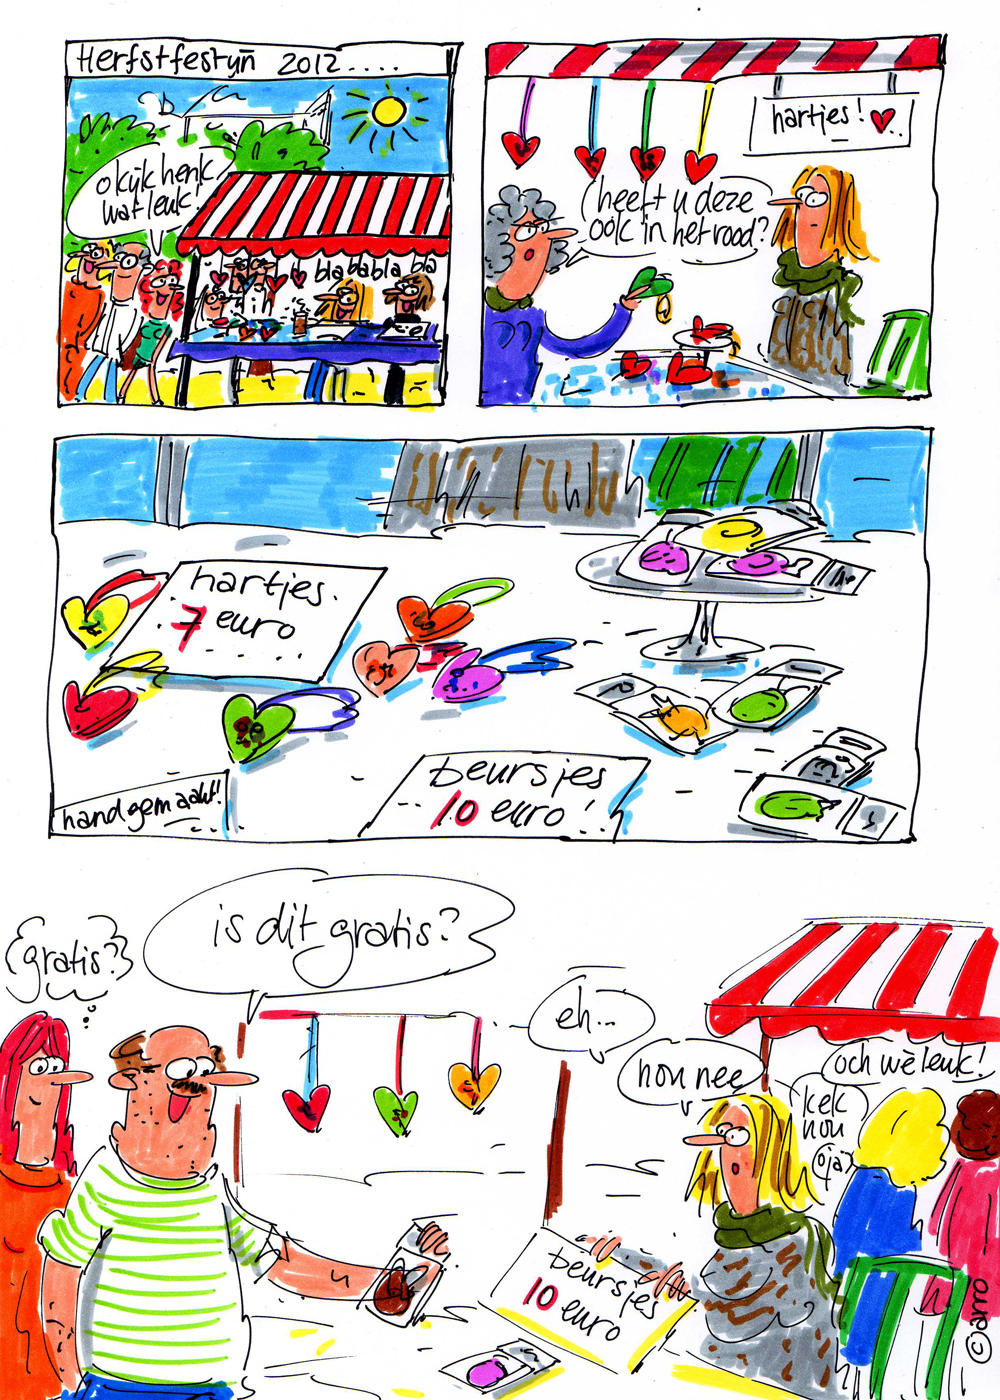 Herfstfestijn 2012.....
o kijk henk
wat leuk!
bla babla bla
hartjes!
heeft u deze
ook in het rood?
hartjes.
7 euro
handgemaakt!
beursjes
10 euro!
is dit gratis?
gratis?
eh...
nou nee
och wè leuk!
kek
nou
oja
beursjes
10 euro
©arro